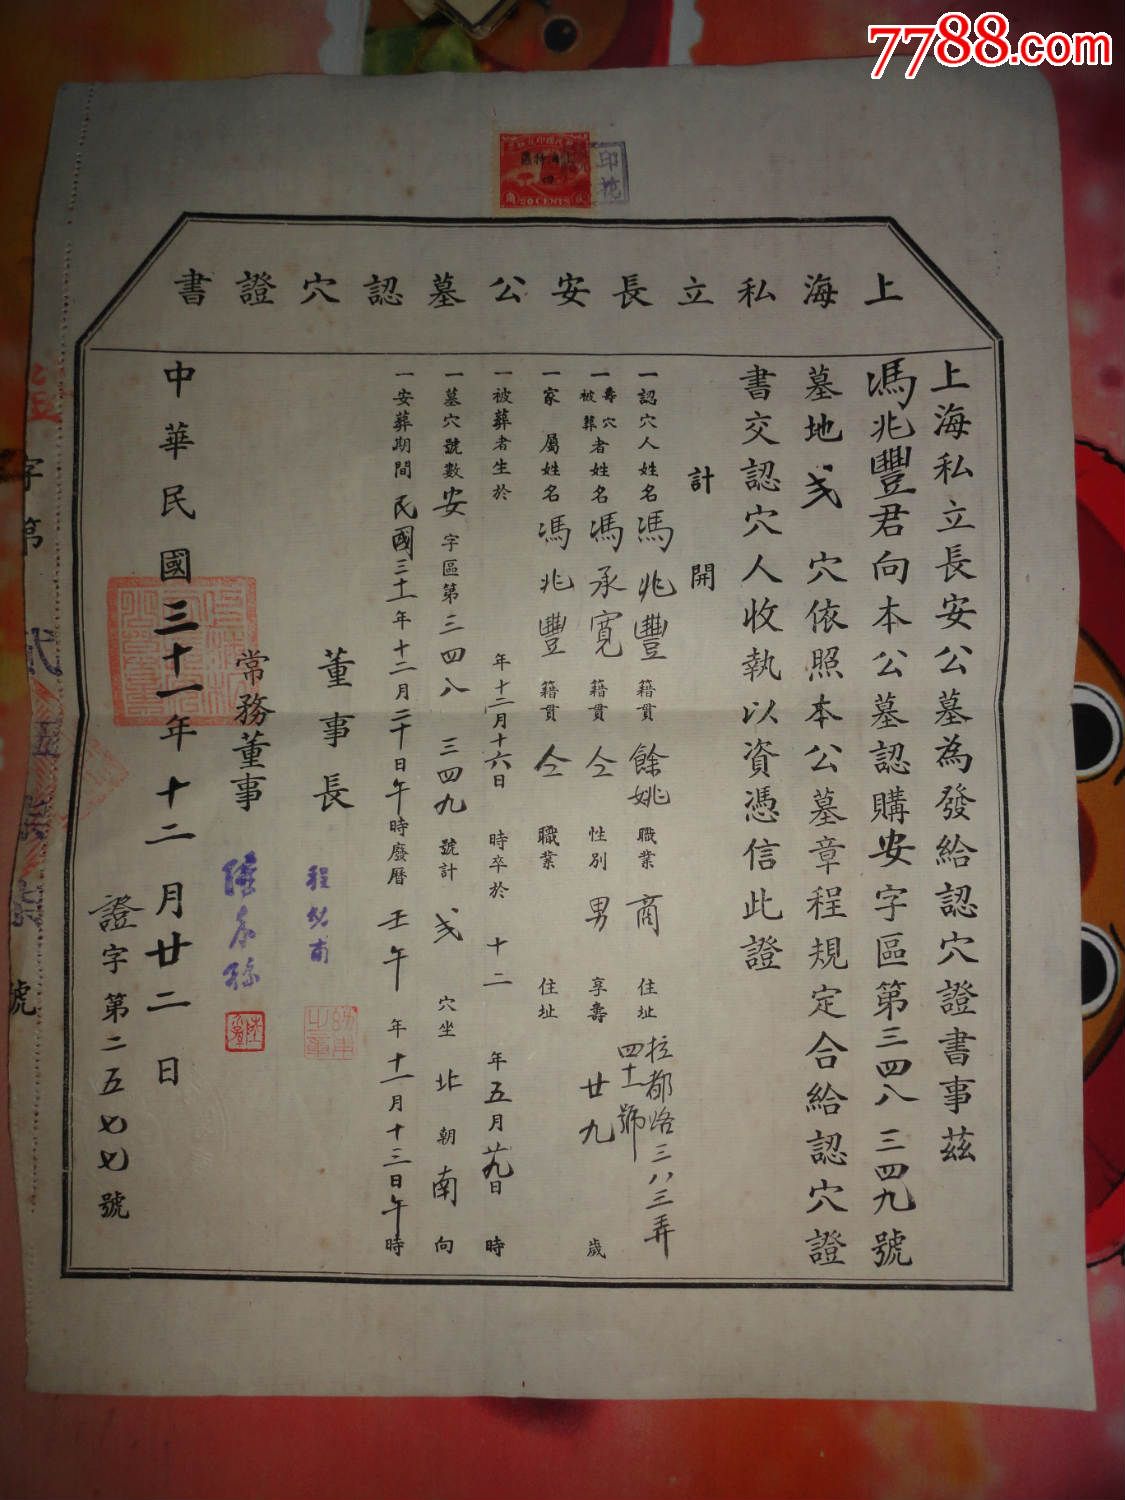 7788.com
印花
20 CENTS
上海私立長安公墓認穴證書
上海私立長安公墓為發給認穴證書事茲
馮兆豐君向本公墓認購安字區第三四八 三四九號
墓地弍穴依照本公墓章程規定合給認穴證
書交認穴人收執以資憑信此證
計開
一認穴人姓名馮兆豐 籍貫 餘姚 職業 商 住址 拉都路三八三弄四十一號
一壽穴被葬者姓名馮承寬 籍貫 仝 性別 男 享壽 廿九 歲
一家屬姓名馮兆豐 籍貫 仝 職業 住址
一被葬者生於 年十二月十六日 時卒於 十二 年五月廿九日 時
一墓穴號數安字區第三四八 三四九 號計 弍 穴坐 北 朝 南 向
一安葬期間民國三十一年十二月二十日午時廢曆 壬午 年十一月十三日午時
董事長 程
常務董事
中華民國三十一年十二月廿二日
證字第二五七七號
字第
號